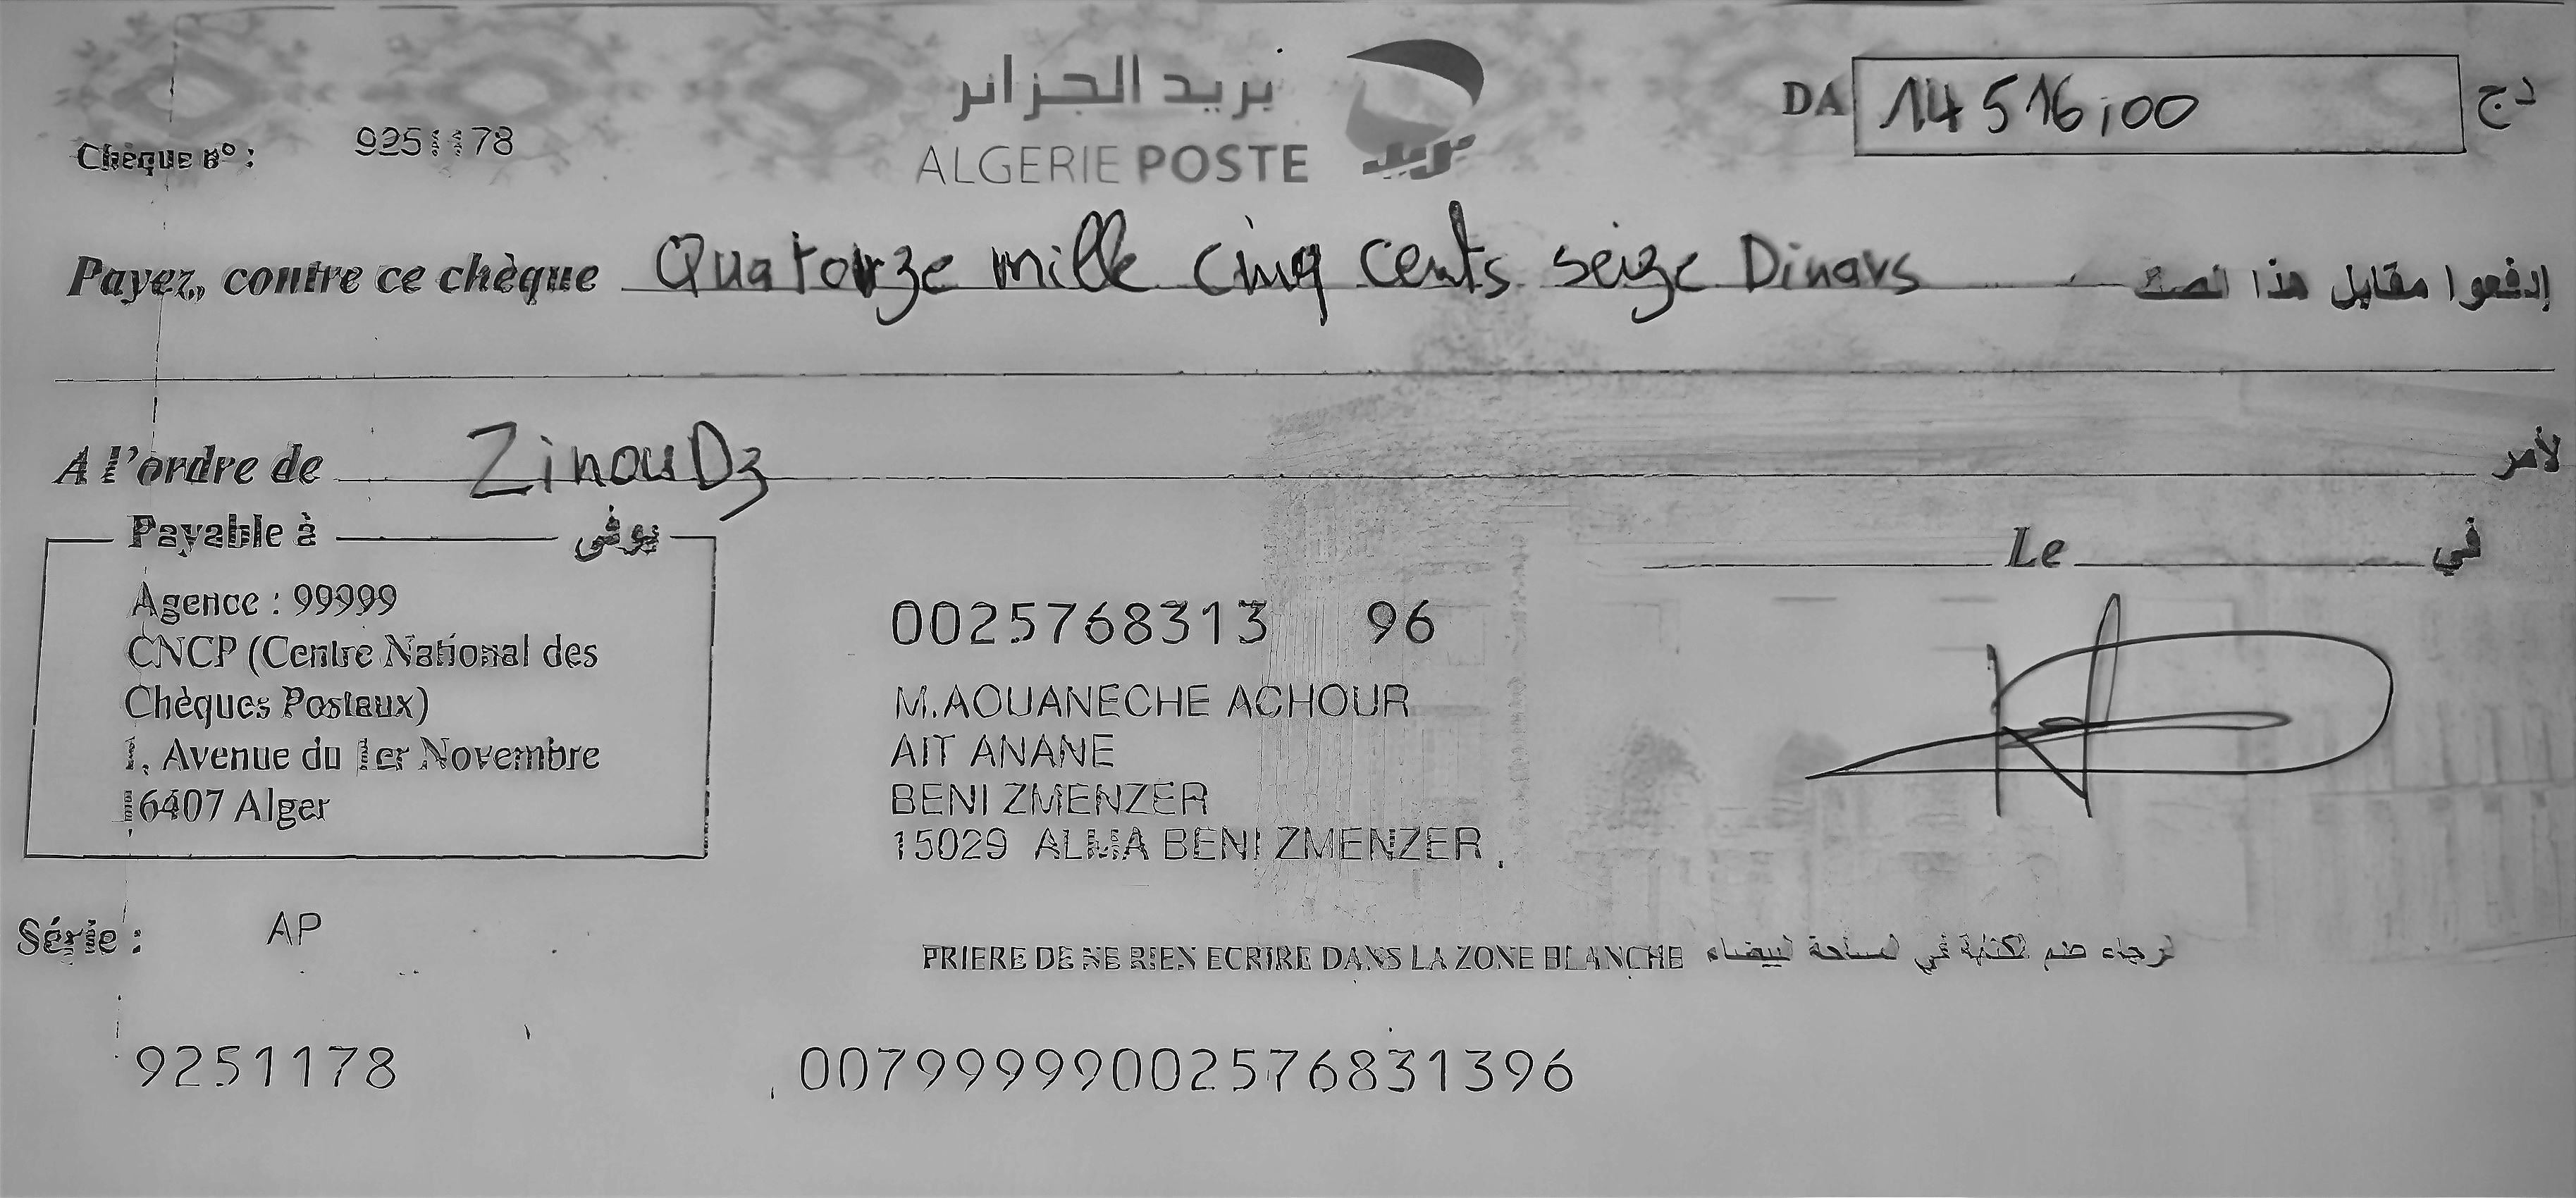 بريد الجزائر
ALGERIE POSTE
بريد
Chèque n° : 9251178
DA 14516,00 دج
Payez, contre ce chèque Quatorze mille cinq cents seize Dinars إدفعوا مقابل هذا الصك
A l'ordre de ZinouDz لأمر
Payable à يوفى
Agence : 99999
CNCP (Centre National des
Chèques Postaux)
1, Avenue du 1er Novembre
16407 Alger
Le في
0025768313 96
M.AOUANECHE ACHOUR
AIT ANANE
BENI ZMENZER
15029 ALMA BENI ZMENZER
Série : AP
PRIERE DE NE RIEN ECRIRE DANS LA ZONE BLANCHE الرجاء عدم الكتابة في المساحة البيضاء
9251178 00799999002576831396